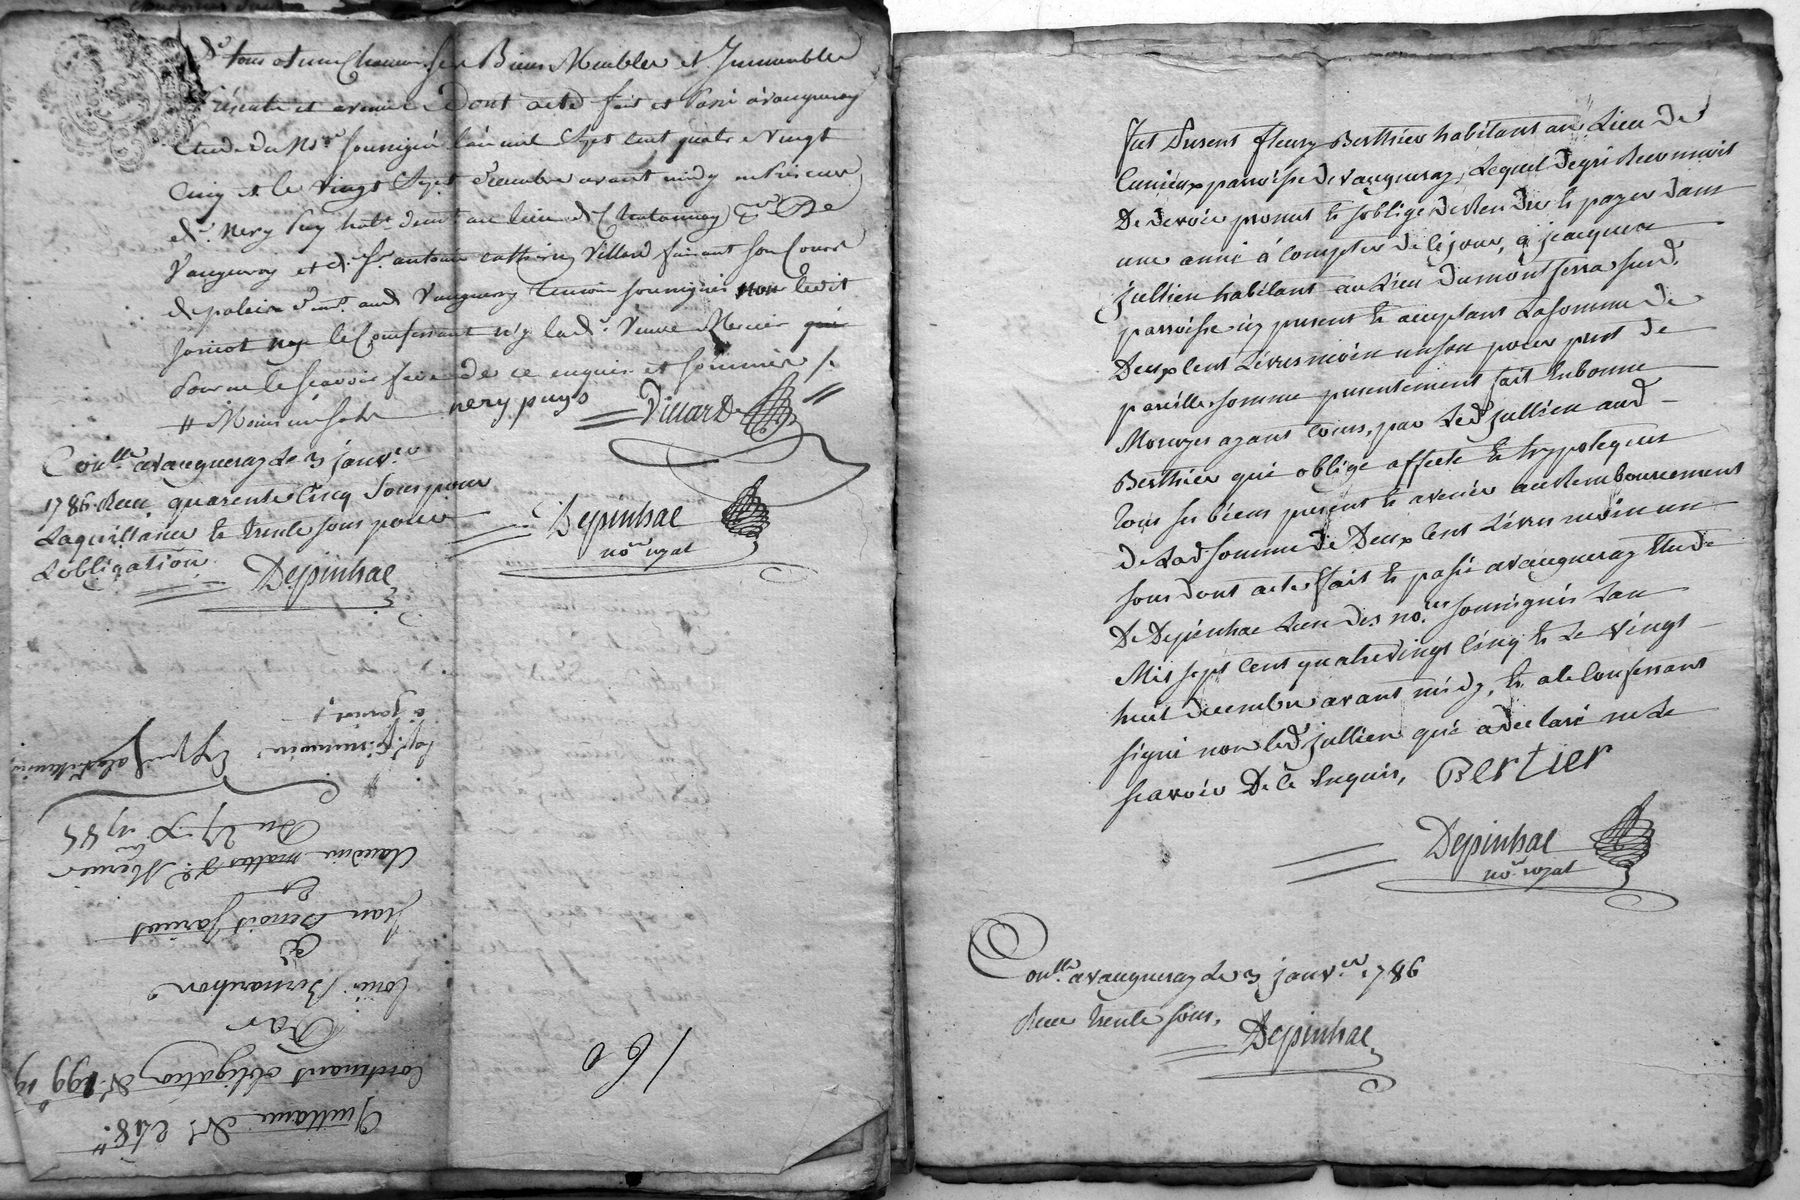 de tous et un Chacun ses Biens Meubles et Immeubles
présents et avenir dont acte fait et passé a vaugneray
Etude du No.re soussigné l'an mil Sept cent quatre Vingt
Cinq et le vingt Sept decembre avant midy en présence
de S. nery puy hab.t dem.t au lieu de Chatanay
Vaugneray et de S.r antoine catherin Villard faisant son Cours
de palais dem.t aud Vaugneray temoins soussignés non ledit
Jariot ny le Confessant ny lad.e Veuve Mercier qui
pour ne le scavoir faire de ce enquis et sommés /.
# Moins un sol
nery puys
Villard
Con.lle a vaugneray Le 3 janv.er
1786. Recu quarente Cinq Sous pour
La quittance et trente sous pour
L'obligation
Depinhac
Depinhac
no.re royal
160
Quittance de 248.#
Contenant obligation de 199 # 19
Par
Louis Bernanchon
a
Jean Benoit Jariot
&
Claudine mattes V.e Mercier
Du 27 x.bre 1785
Fut Present fleury Berthier habitant au Lieu de
parroisse de vaugneray, Lequel degré Reconnoit
De devoir promet et soblige de Rendre et payer dans
une année à compter de ce jour, a jacques
jullien habitant au Lieu du mont ferra sus d.
parroisse icy present et acceptant La somme de
Deux Cent Livres moin un sou pour pret de
pareille somme presentement fait en bonne
Monoyes ayant cours, par Led jullien aud
Berthier qui oblige affecte et hypoteque
tous ses biens present et avenir au Remboursement
de Lad somme de Deux Cent Livres moin un
sous dont acte fait et passé a vaugneray Etude
De Depinhac L'un des no.res soussignés L'an
Mil sept cent quatrevingt Cinq et Le vingt
huit decembre avant midy, et a le Confessant
signé non led jullien qui a declaré ne Le
scavoir De ce Enquis, Bertier
Depinhac
no.re royal
Con.lle a vaugneray Le 3 janv.er 1786
Recu trente sous,
Depinhac